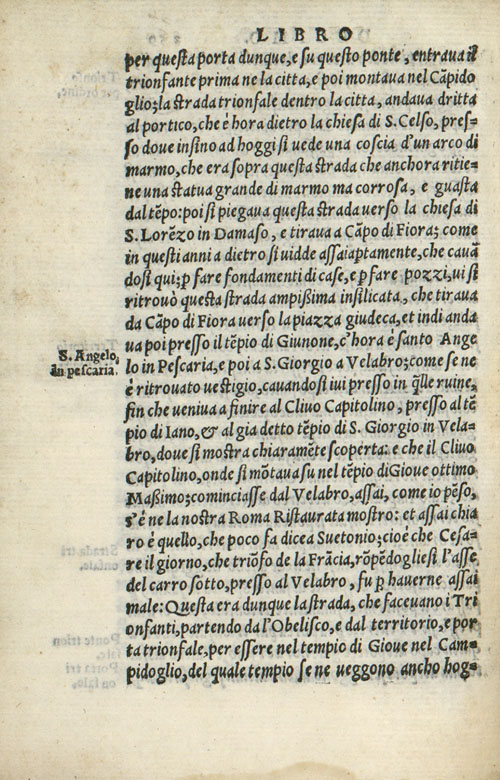 LIBRO
per questa porta dunque, e su questo ponte, entraua il
trionfante prima ne la citta, e poi montaua nel Cãpido
glio; la strada trionfale dentro la citta, andaua dritta
al portico, che é hora dietro la chiesa di S. Celso, pres=
so doue insino ad hoggi si uede una coscia d'un arco di
marmo, che era sopra questa strada che anchora ritie=
ne una statua grande di marmo ma corrosa, e guasta
dal tẽpo: poi si piegaua questa strada uerso la chiesa di
S. Lorẽzo in Damaso, e tiraua a Cãpo di Fiora; come
in questi anni a dietro si uidde assai aptamente, che cauã
dosi qui; ꝑ fare fondamenti di case, e ꝑ fare pozzi, ui si
ritrouò questa strada ampißima insilicata, che tiraua
da Cãpo di Fiora uerso la piazza giudeca, et indi anda
ua poi presso il tẽpio di Giunone, c'hora é santo Ange
S. Angelo,
in pescaria.
lo in Pescaria, e poi a S. Giorgio a Velabro; come se ne
é ritrouato uestigio, cauandosi iui presso in q̃lle ruine,
fin che ueniua a finire al Cliuo Capitolino, presso al tẽ
pio di Iano, & al gia detto tẽpio di S. Giorgio in Vela=
bro, doue si mostra chiaramẽte scoperta: e che il Cliuo
Capitolino, onde si mõtaua su nel tẽpio di Gioue ottimo
Maßimo; cominciasse dal Velabro, assai, come io pẽso,
s'é ne la nostra Roma Ristaurata mostro: et assai chia
ro é quello, che poco fa dicea Suetonio; cioé che Cesa=
re il giorno, che triõfo de la Frãcia, rõpẽdoglie si l'asse
del carro sotto, presso al Velabro, fu ꝑ hauerne assai
male: Questa era dunque la strada, che faceuano i Tri
onfanti, partendo da l'Obelisco, e dal territorio, e por
ta trionfale, per essere nel tempio di Gioue nel Cam=
pidoglio, del quale tempio se ne ueggono ancho hog=